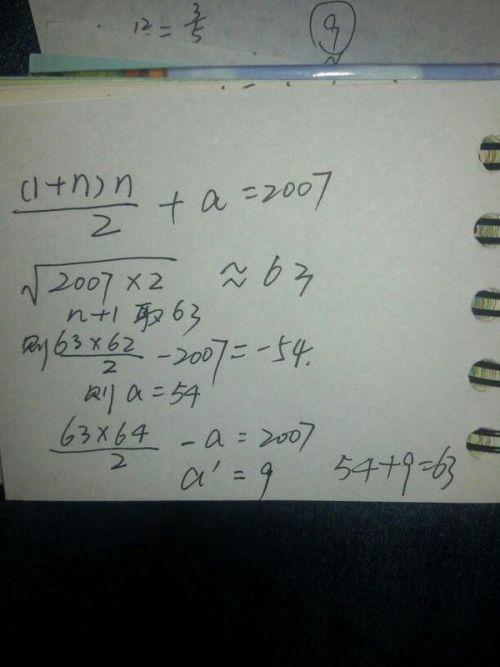 12 = 3/5
9
(1+n)n/2 + a = 2007
√2007×2 ≈ 63
n+1 取 63
则 63×62/2 - 2007 = -54.
则 a = 54
63×64/2 - a = 2007
a' = 9
54+9=63